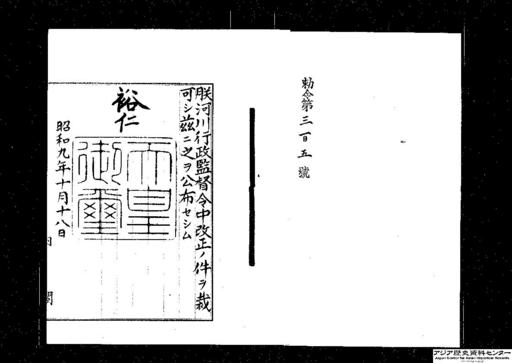 勅令第三百五號
朕河川行政監督令中改正ノ件ヲ裁
可シ茲ニ之ヲ公布セシム
裕仁
天皇御璽
昭和九年十月十八日
内閣
アジア歴史資料センター
Japan Center for Asian Historical Records